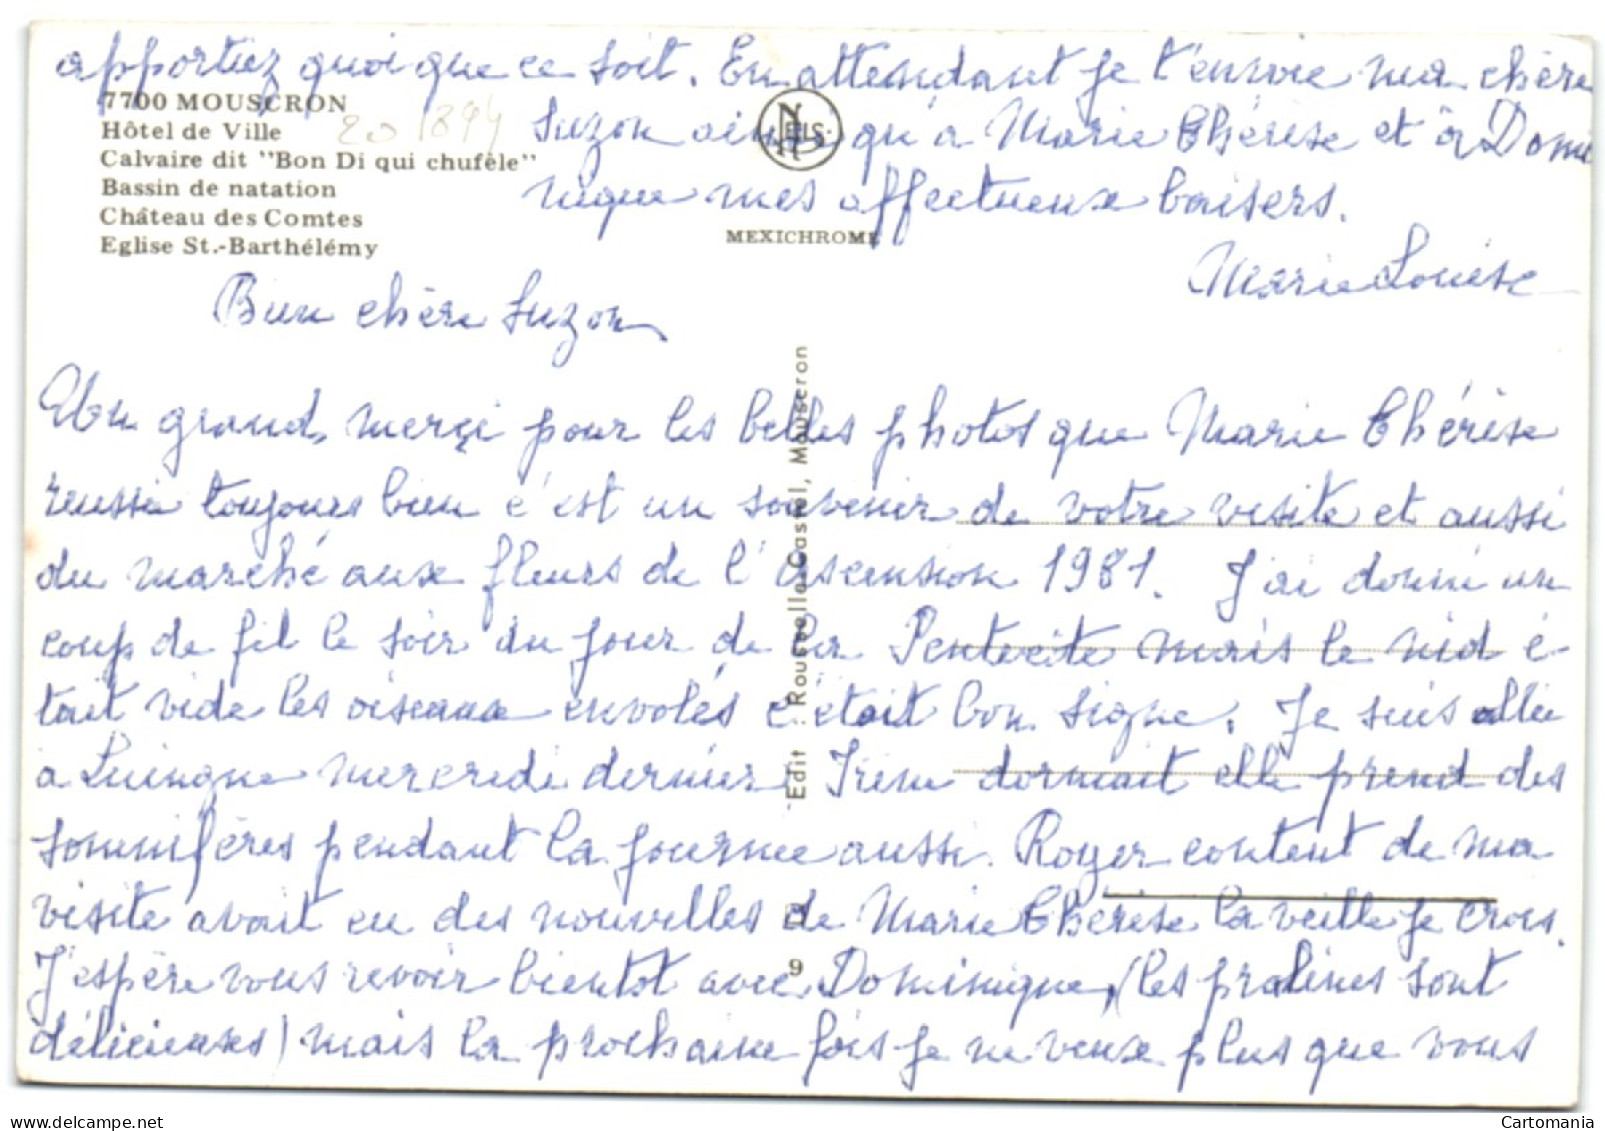 apportiez quoi que ce soit. En attendant je t'envoie ma chère
7700 MOUSCRON
Hôtel de Ville
Calvaire dit "Bon Di qui chufèle"
Bassin de natation
Château des Comtes
Eglise St.-Barthélémy
20 1894
NELS
MEXICHROME
Suzon ainsi qu'à Marie Thérèse et à Domi
nique mes affectueux baisers.
Marie Louise
Bien chère Suzon
Un grand merçi pour les belles photos que Marie Thérèse
reussi toujours bien c'est un souvenir de votre visite et aussi
du marché aux fleurs de l'Ascension 1981. J'ai donné un
coup de fil le soir du jour de la Pentecôte mais le nid é-
tait vide les oiseaux envolés c'était bon signe. Je suis allée
a Luingne mercredi dernier Irène dormait elle prend des
somnifères pendant la journée aussi. Roger content de ma
visite avait eu des nouvelles de Marie Thérèse la veille je crois.
J'espère vous revoir bientot avec Dominique, (les pralines sont
délicieuses) mais la prochaine fois je ne veux plus que vous
Edit : Rousselle-Cassel, Mouscron
9
Cartomania